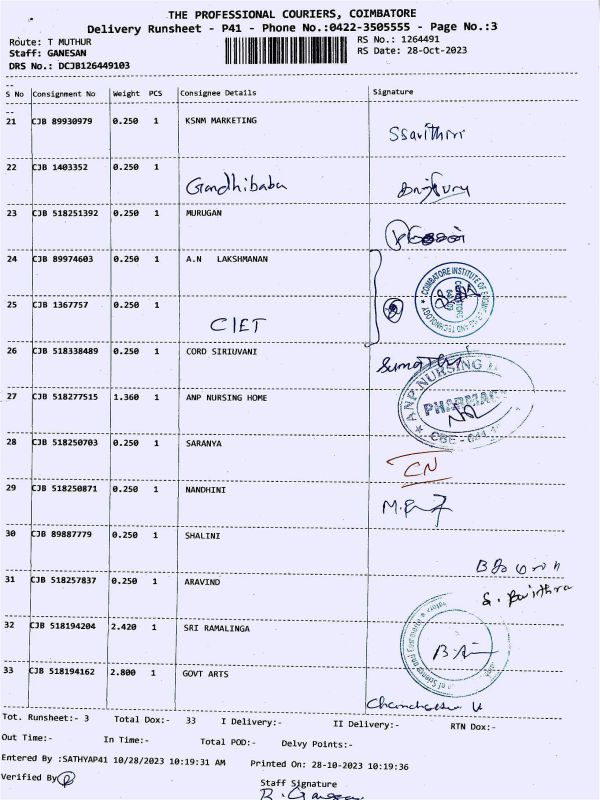 THE PROFESSIONAL COURIERS, COIMBATORE
Delivery Runsheet - P41 - Phone No.:0422-3505555 - Page No.:3
Route: T MUTHUR RS No.: 1264491
Staff: GANESAN RS Date: 28-Oct-2023
DRS No.: DCJB126449103
S No Consignment No Weight PCS Consignee Details Signature
21 CJB 89930979 0.250 1 KSNM MARKETING
22 CJB 1403352 0.250 1
Gandhibabu
23 CJB 518251392 0.250 1 MURUGAN
24 CJB 89974603 0.250 1 A.N LAKSHMANAN
25 CJB 1367757 0.250 1
CIET
26 CJB 518338489 0.250 1 CORD SIRIUVANI
27 CJB 518277515 1.360 1 ANP NURSING HOME
ANP NURSING
PHARMACY
28 CJB 518250703 0.250 1 SARANYA
CN
29 CJB 518250871 0.250 1 NANDHINI
30 CJB 89887779 0.250 1 SHALINI
31 CJB 518257837 0.250 1 ARAVIND
S. Pavithra
32 CJB 518194204 2.420 1 SRI RAMALINGA
33 CJB 518194162 2.800 1 GOVT ARTS
Tot. Runsheet:- 3 Total Dox:- 33 I Delivery:- II Delivery:- RTN Dox:-
Out Time:- In Time:- Total POD:- Delvy Points:-
Entered By :SATHYAP41 10/28/2023 10:19:31 AM Printed On: 28-10-2023 10:19:36
Verified By
Staff Signature